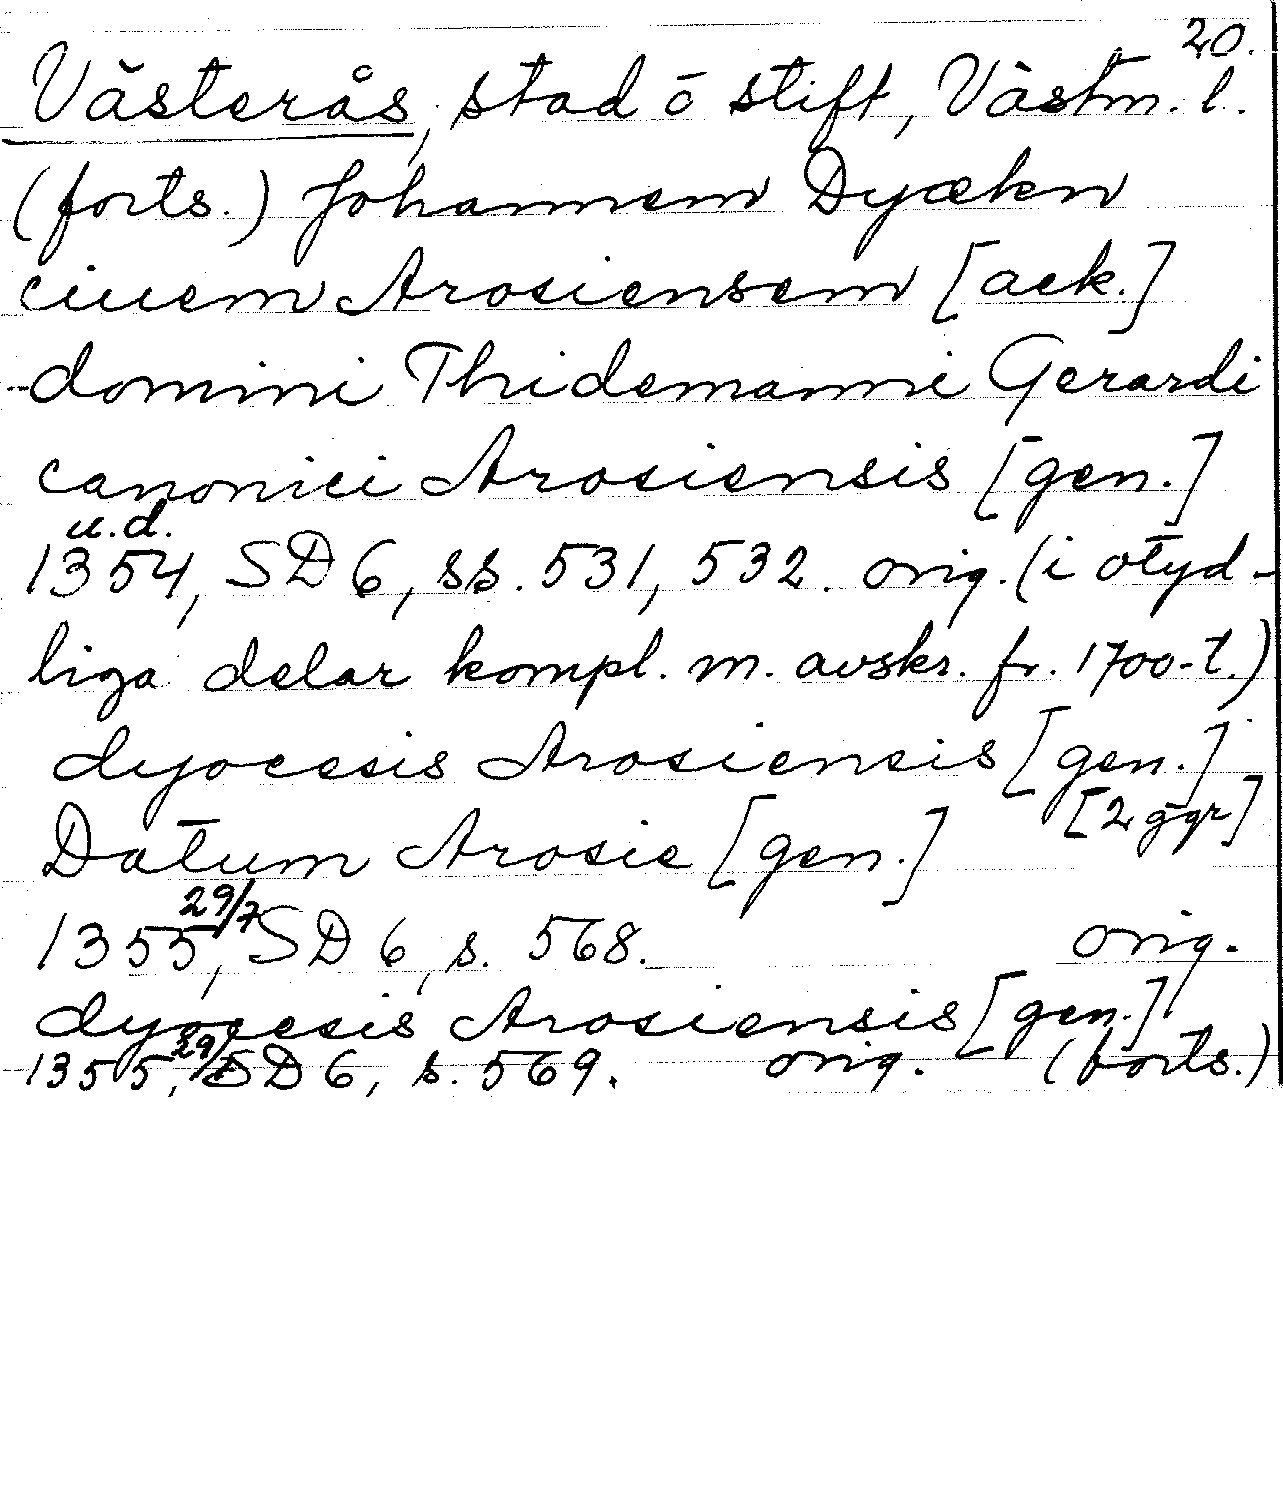 20.
Västerås, stad ō stift, Västm. l.
(forts.) Johannem Dyækn
ciuem Arosiensem [ack.]
domini Thidemanni Gerardi
canonici Arosiensis [gen.]
u.d.
1354, SD 6, ss. 531, 532. orig. (i otyd-
liga delar kompl. m. avskr. fr. 1700-t.)
dyocesis Arosiensis [gen.]
[2 ggr]
Datum Arosie [gen.]
29/7
1355, SD 6, s. 568. orig.
dyocesis Arosiensis [gen.]
29/7
1355, SD 6, s. 569. orig. (forts.)